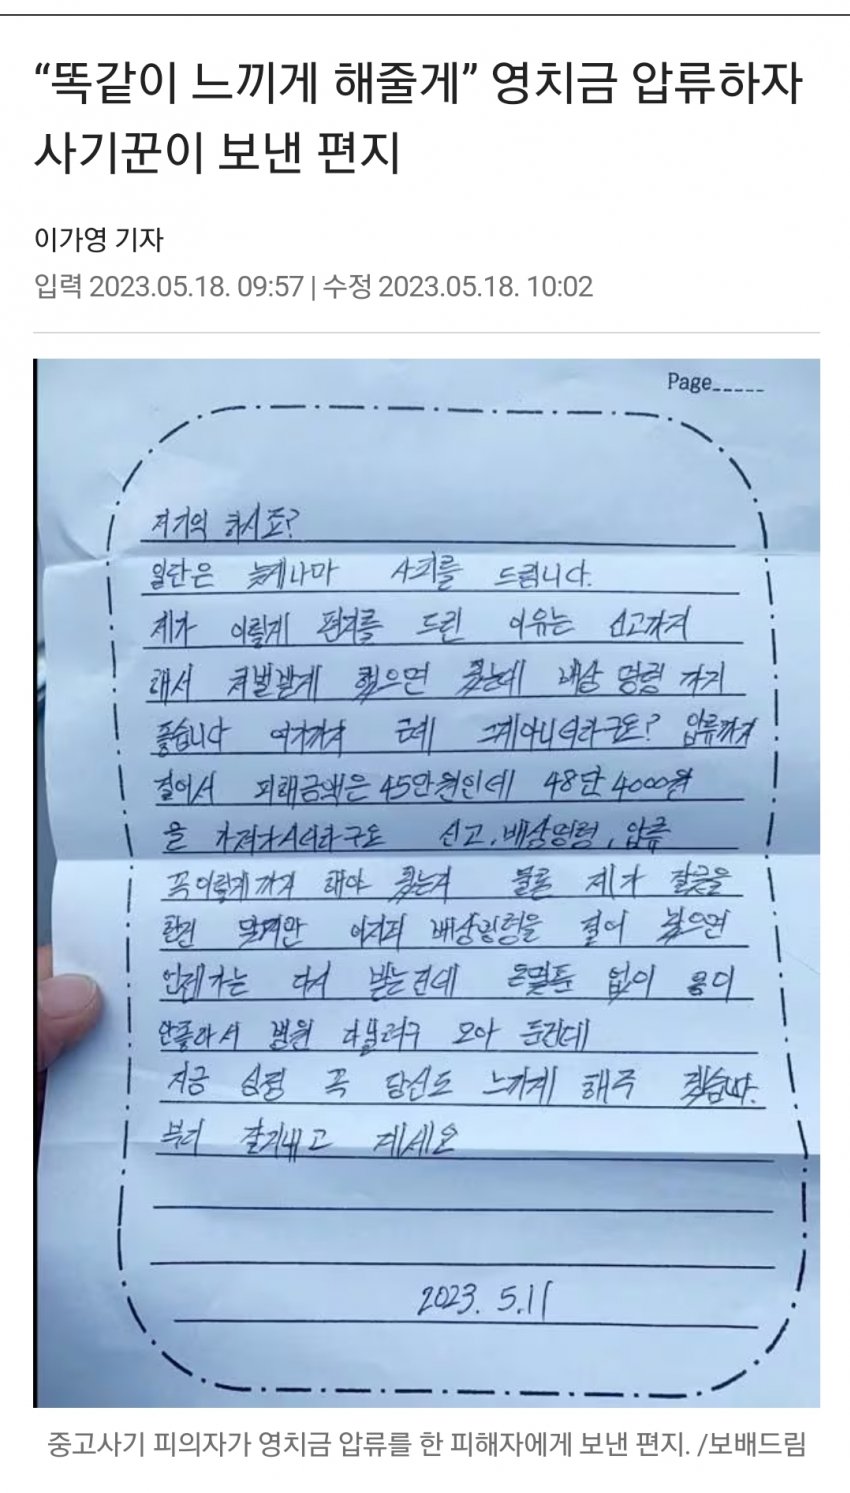 “똑같이 느끼게 해줄게” 영치금 압류하자
사기꾼이 보낸 편지
이가영 기자
입력 2023.05.18. 09:57 | 수정 2023.05.18. 10:02
Page_____
저기억 하시죠?
일단은 늦게나마 사죄를 드립니다.
제가 이렇게 편지를 드린 이유는 신고까지
해서 처벌받게 했으면 됬는데 배상 명령 까지
좋습니다 여기까지 근데 그게아니더라구요? 압류까지
걸어서 피해금액은 45만원인데 48만 4000원
을 가져가시더라구요 신고, 배상명령, 압류
꼭이렇게까지 해야 됬는지 물론 제가 잘못을
한건 맞지만 어차피 배상명령을 걸어 놨으면
언젠가는 다시 받는건데 돈몇푼 없이 몸이
안좋아서 병원 다닐려구 모아 둔건데
지금 심정 꼭 당신도 느끼게 해주 겠습니다.
부디 잘지내고 계세요
2023. 5.11
중고사기 피의자가 영치금 압류를 한 피해자에게 보낸 편지. /보배드림